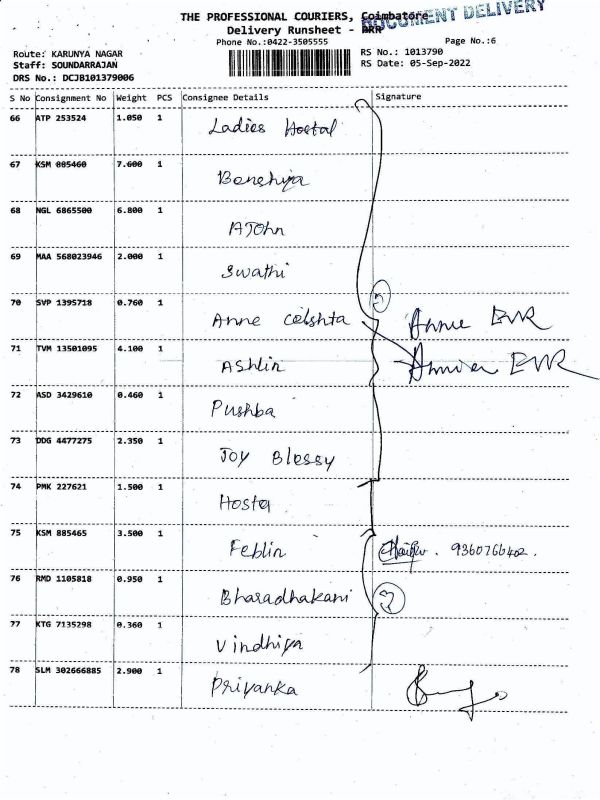 THE PROFESSIONAL COURIERS, Coimbatore
DOCUMENT DELIVERY
Delivery Runsheet -
Phone No.:0422-3505555
Page No.:6
Route: KARUNYA NAGAR
RS No.: 1013790
Staff: SOUNDARRAJAN
RS Date: 05-Sep-2022
DRS No.: DCJB101379006
S No Consignment No Weight PCS Consignee Details Signature
66 ATP 253524 1.050 1 Ladies Hostal
67 KSM 885460 7.600 1
68 NGL 6865500 6.800 1 AJohn
69 MAA 568023946 2.000 1 Swathi
70 SVP 1395718 0.760 1 Anne
71 TVM 13501095 4.100 1 Ashlin
72 ASD 3429610 0.460 1 Pushba
73 DDG 4477275 2.350 1 Joy Blessy
74 PMK 227621 1.500 1
75 KSM 885465 3.500 1 Feblin 9360766402.
76 RMD 1105818 0.950 1 Bharadhakani
77 KTG 7135298 0.360 1 Vindhiya
78 SLM 302666885 2.900 1 Priyanka